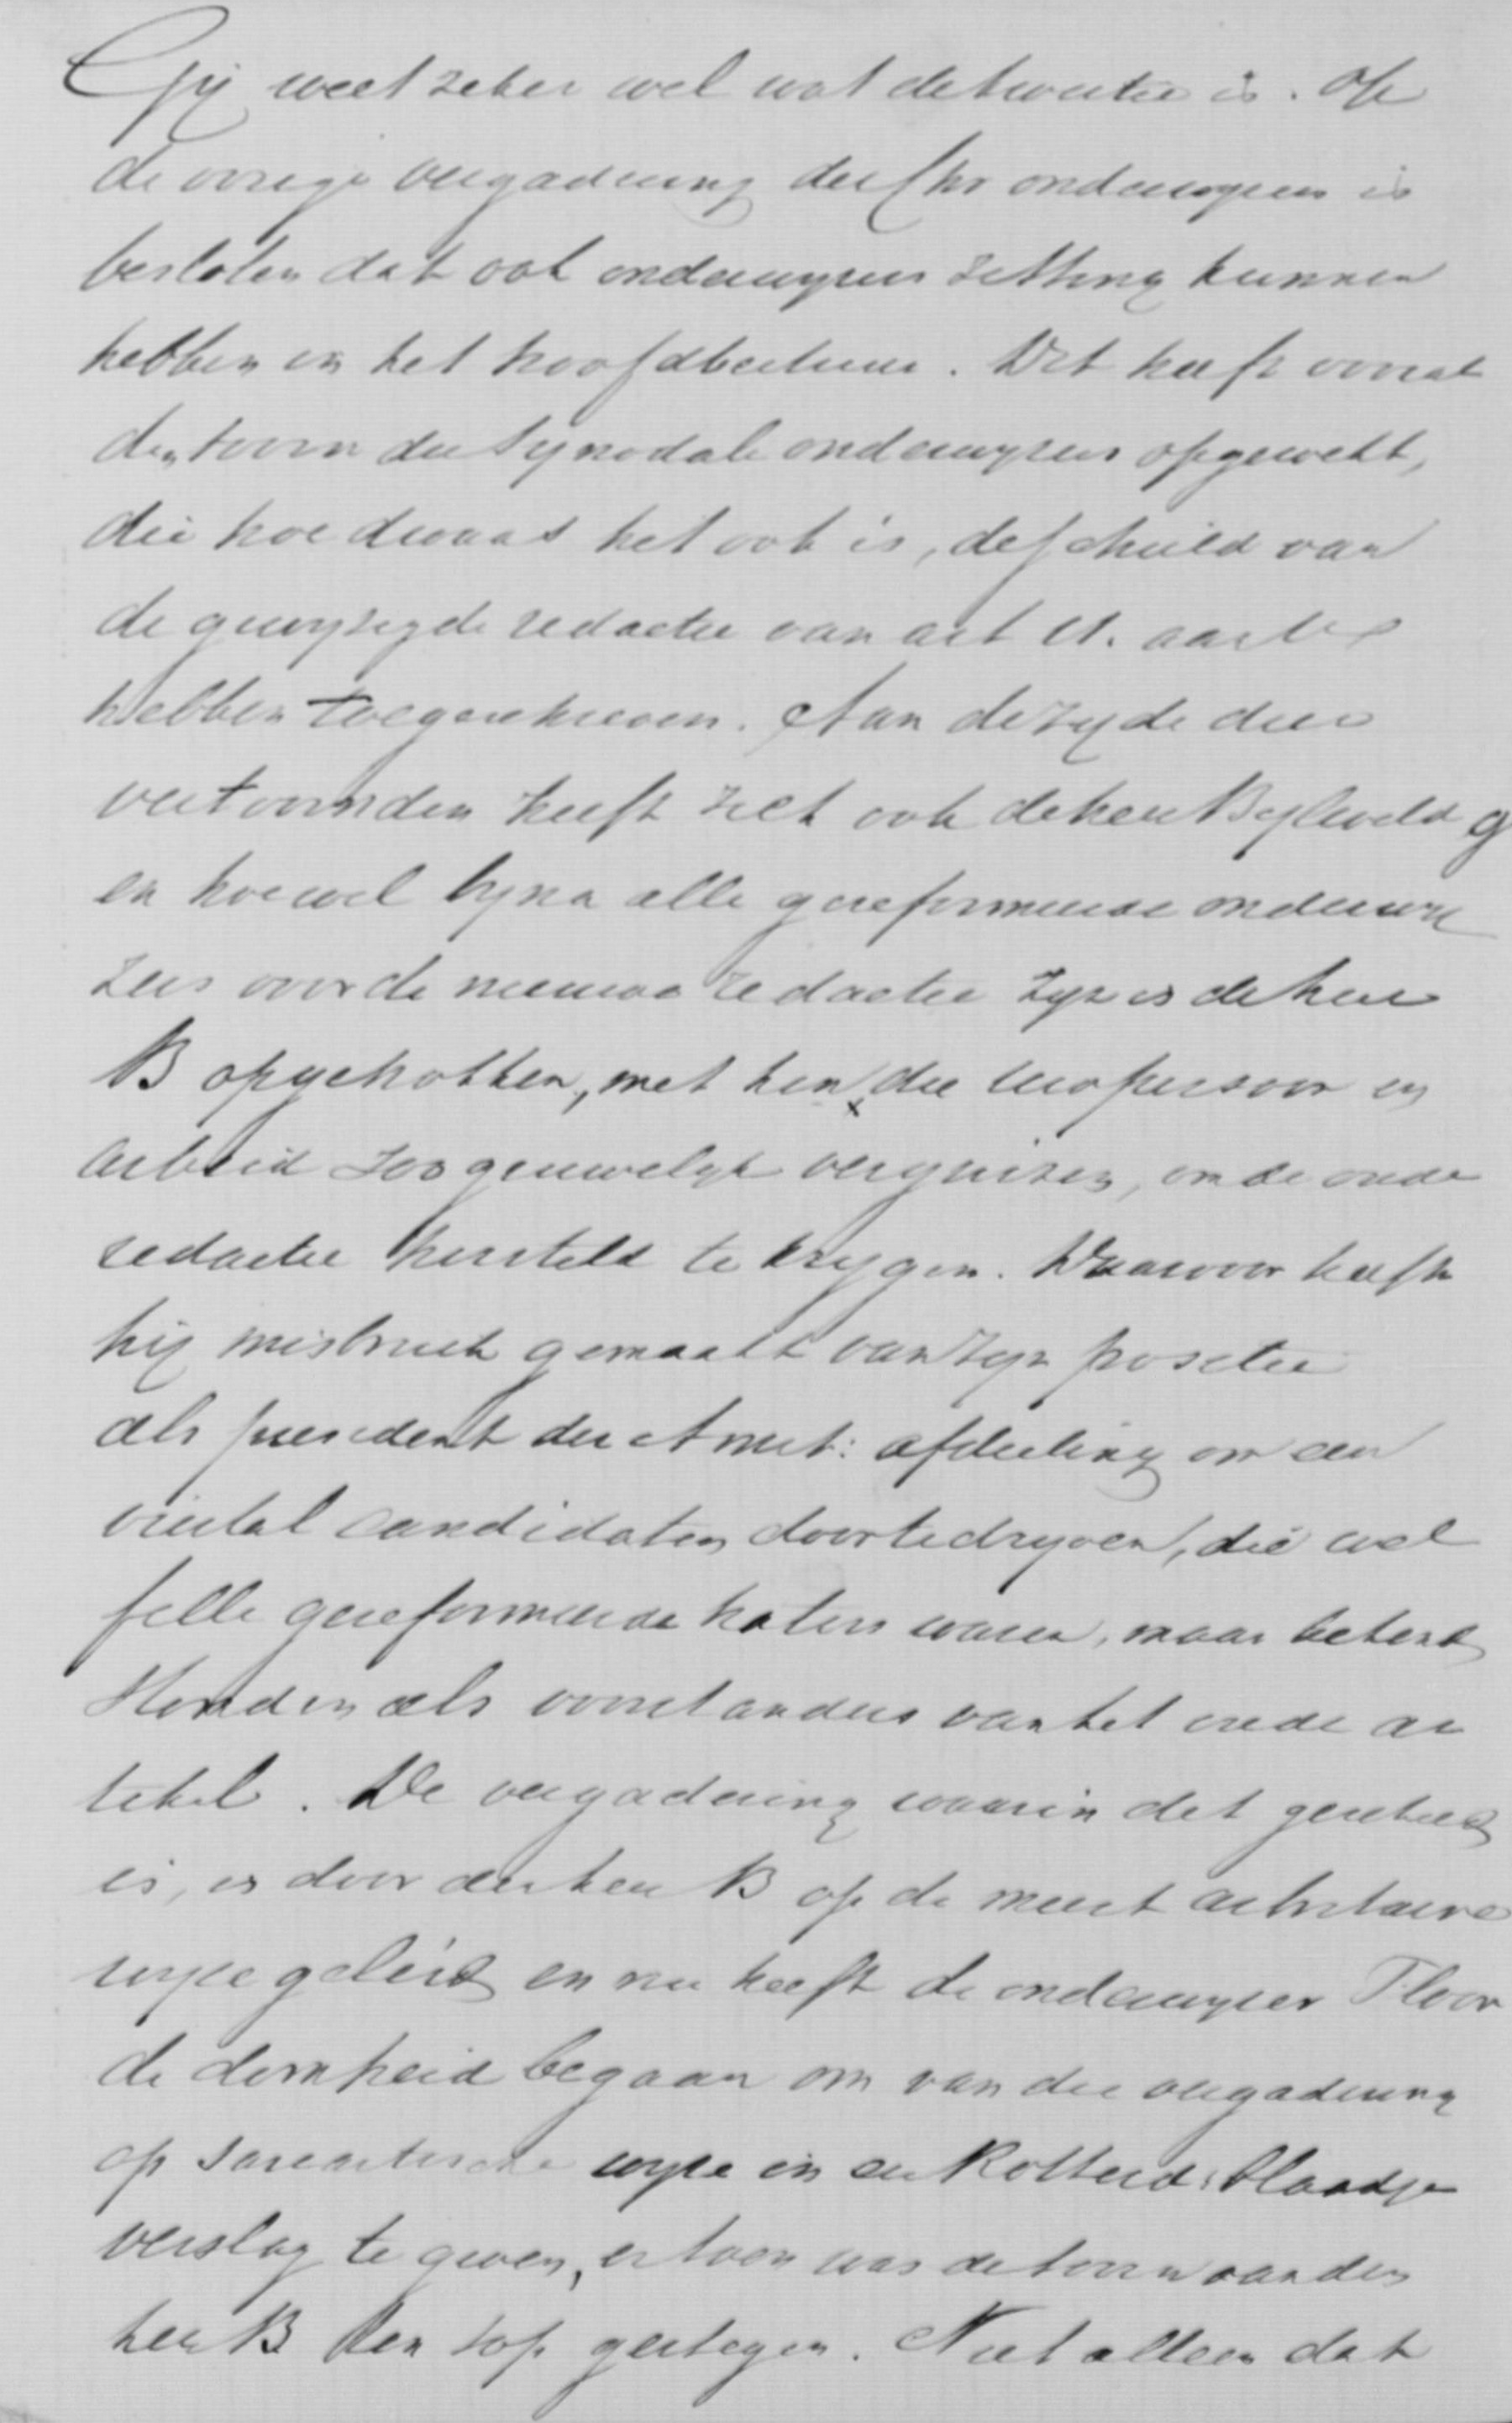 Gij weet zeker wel wat de kwestie is. Op
de vorige vergadering der Chr onderwyzers is
besloten dat ook onderwyzers zitting kunnen
hebben in het hoofdbestuur. Dit heeft vooral
den toorn der Synodale onderwyzers opgewekt,
die hoe dwaas het ook is, de schuld van
de gewyzigde redactie van art 11. aan
hebben toegeschreven. Aan de zyde der
vertoornden heeft zich ook de heer Byleveld g
en hoewel byna alle gereformeerde onderwy
zers voor de nieuwe redactie zyn is de heer
B opgetrokken, met hen, die uw persoon en
arbeid zoo gruwelyk verguizen, om de oude
redactie hersteld te krygen. Daarvoor heeft
hij misbruik gemaakt van zyn positie
als president der Amst: afdeeling om een
viertal candidaten door te dryven, die wel
felle gereformeerde haters waren, maar bekend
stonden als voorstanders van het oude ar
tikel. De vergadering waarin dit geschied
is, is door den heer B op de meest arbitraire
wyze geleid en nu heeft de onderwyzer Floor
de domheid begaan om van die vergadering
op sarcastische wyze in een Rotterd: blaadje
verslag te geven, en toen was de toorn van den
heer B ten top gestegen. Niet alleen dat